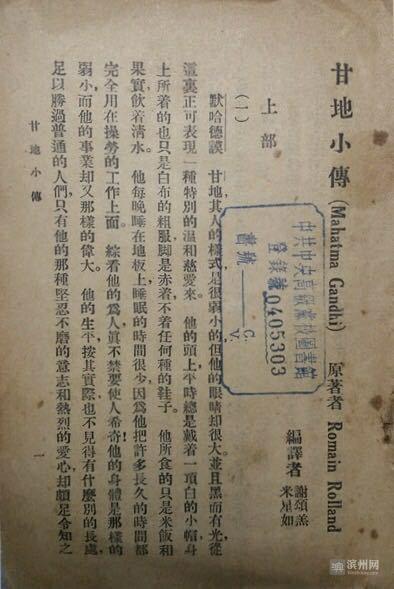 甘地小傳 (Mahatma Gandhi) 原著者 Romain Rolland
編譯者 謝頌羔
米星如
上部
(一)
默哈德謨 甘地,其人的樣式是很弱小的,但他的眼睛却很大,並且黑而有光,從
這裏正可表現一種特別的温和慈愛來。 他的頭上,平時總是戴着一頂白的小帽,身
上所着的也只是白布的粗服,脚是赤着不着任何種的鞋子。 他所食的只是米飯和
果實,飲着清水。 他每晚睡在地板上,睡眠的時間很少,因爲他把許多長久的時間都
完全用在操勞的工作上面。 綜看他的爲人,眞不禁要使人希奇!他的身體是那樣的
弱小,而他的事業却又那樣的偉大。 他的生平,按其實際也不見得有什麼別的長處,
足以勝過普通的人們,只有他的那種堅忍不磨的意志和熱烈的愛心,却頗足令知之
甘地小傳
一
中共中央高級黨校圖書館
登錄號 0405303
書號
C.
V.
滨州网